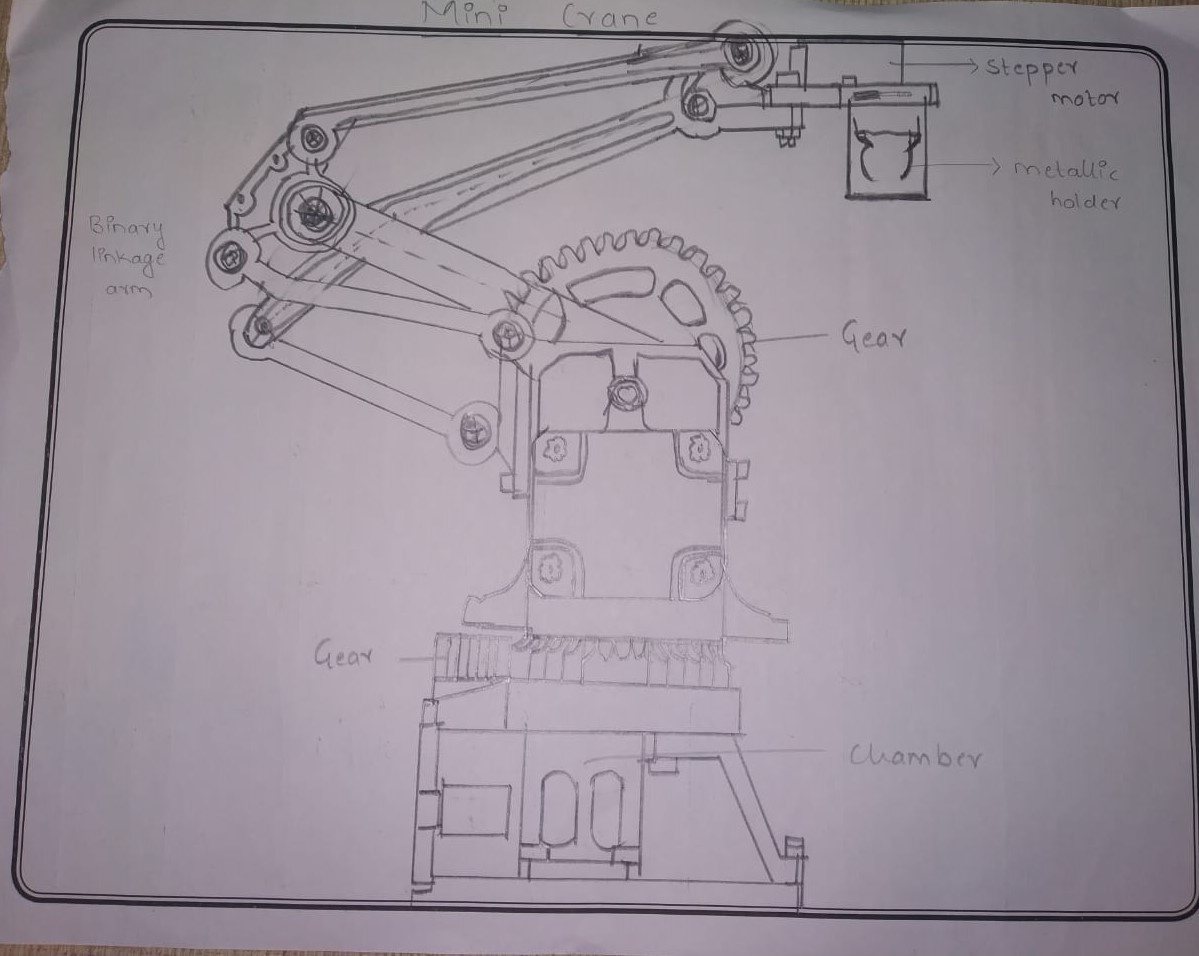 Mini Crane
stepper
motor
metallic
holder
Binary
linkage
arm
Gear
Gear
Chamber